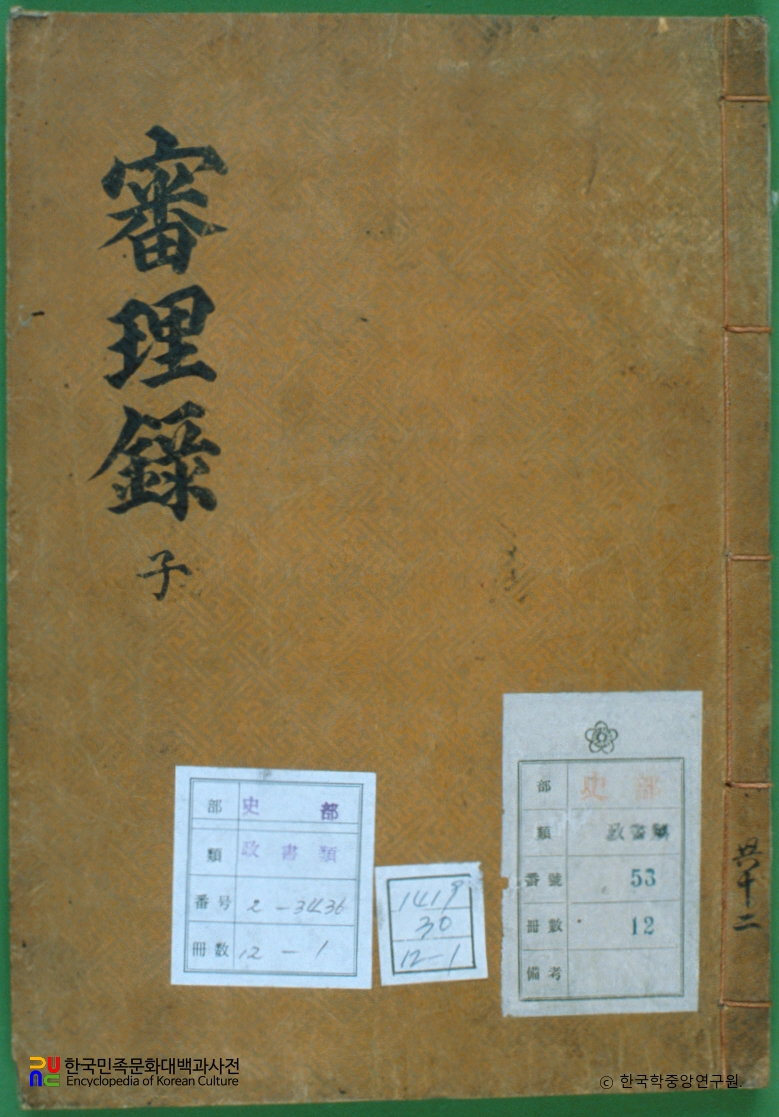 審理錄
子
共十二
部 史 部
類 政書類
番号 2-3436
冊数 12-1
1419
30
12-1
部 史部
類 政書類
番號 53
冊數 12
備考
한국민족문화대백과사전
Encyclopedia of Korean Culture
© 한국학중앙연구원